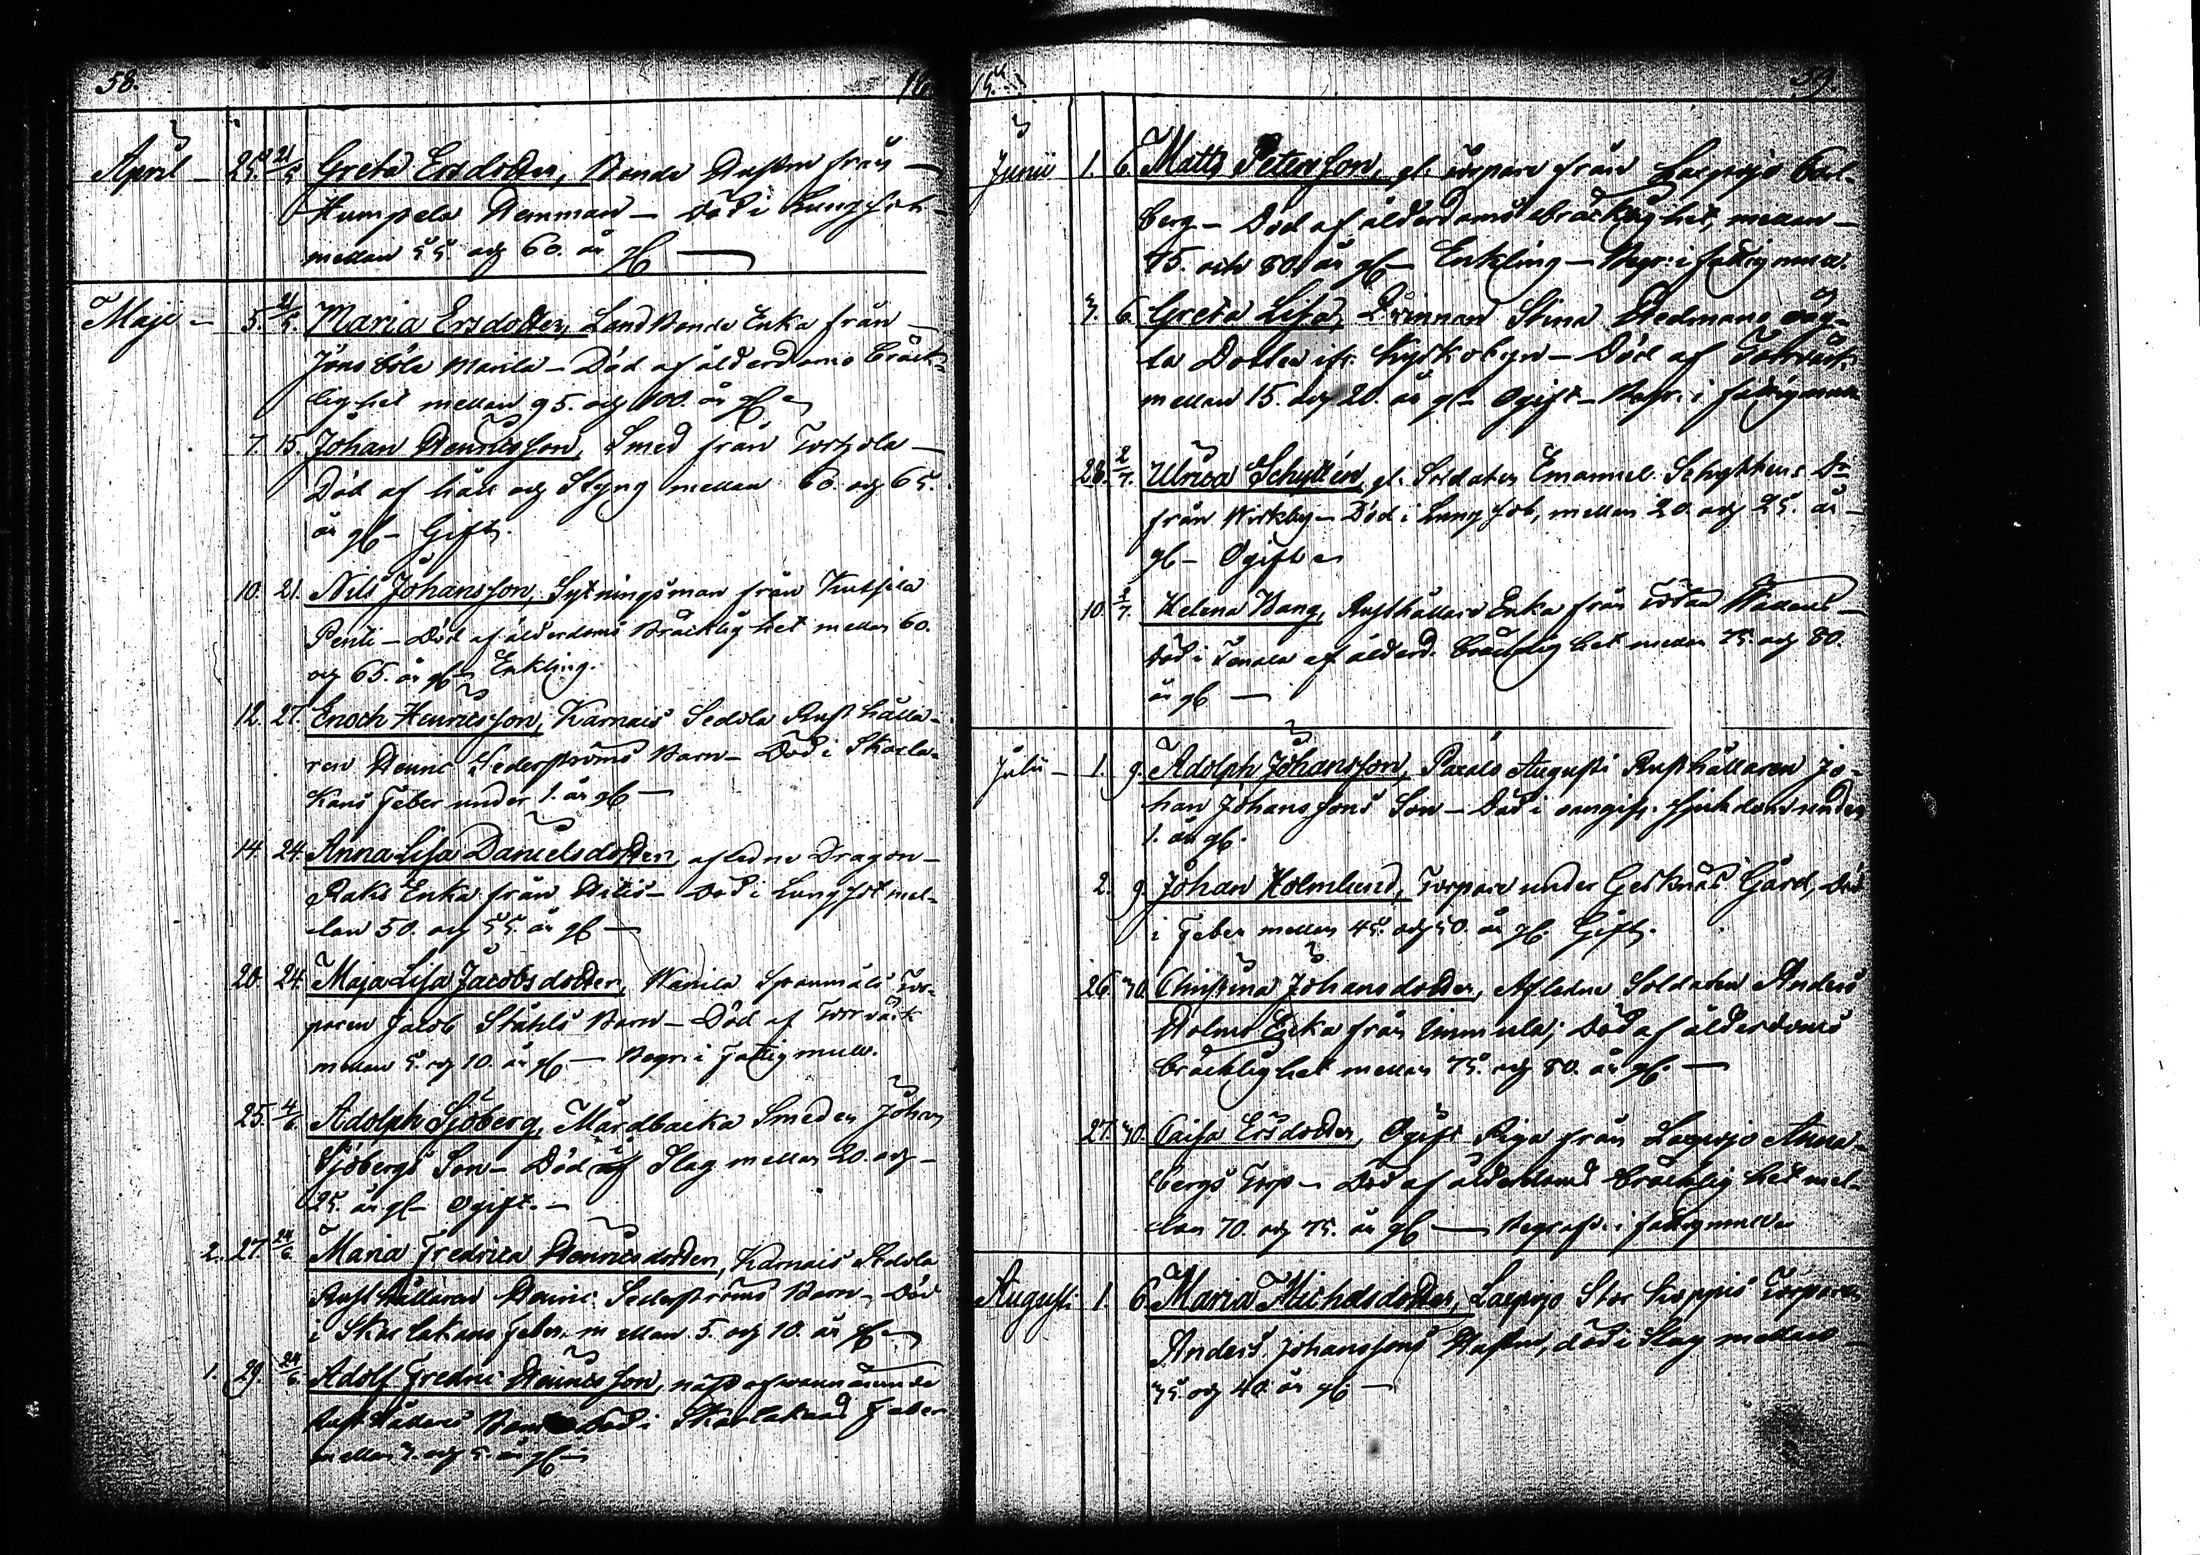 58.
April 25. 21/5 Greta Ersdotter, Bonde Hustru från
Humpila Hemman – Död i Lungsot
mellan 55. och 60. år gl.
Maji – 5. 21/5. Maria Ersdotter, Landbonde Enka från
Jönsböle Marila – Död af ålderdoms bräck-
lighet mellan 95. och 100. år gl.
7. 15. Johan Henricsson, Smed från
Död af håll och Styng mellan 60. och 65.
år gl – Gift.
10. 21. Nils Johansson, Sytningsman från
Pentti – Död af ålderdoms Bräcklighet mellan 60.
och 65. år gl – Enkling.
12. 27. Enoch Henricsson, Karnais Sedola Rusthålla-
ren Henric Sederströms Barn – Död i Skarla-
kans Feber under 1. år gl –
14. 24. Anna Lisa Danielsdotter, afledne Dragon
Enka från – Död i Lungsot mel-
lan 50. och 55. år gl –
20. 24. Maja Lisa Jacobsdotter, Tor-
paren Jacob Ståhls Barn – Död af Torrvärk
mellan 5. och 10. år gl. – Begr. i Fattigmull.
25. 4/6. Adolph Sjöberg, Mårdbacka Smeden Johan
Sjöbergs Son – Död af Slag mellan 20. och
25. år gl – Ogift. –
2. 27. 24/6 Maria Fredrica Henricsdotter, Karnais Sedola
Rusthållaren Henric Sederströms Barn – Död
i Skarlakans Feber mellan 5. och 10. år gl.
1. 29. 24/6 Adolf Fredric Henricsson, näst ofvannämnde
Rusthållares Barn Död i Skarlakans Feber
mellan 3. och 5. år gl –
59.
Junii 1. 6. Matts Petersson, gl. torpare från Lappojo Carl-
berg – Död af ålderdoms bräcklighet, mellan
75. och 80. år gl – Enkling – Begr. i fattigmull.
3. 6. Greta Lisa, Qvinnan Stina Hedmans oäg-
ta Dotter ifr. Kyrkobyn – Död af Torrvärk
mellan 15. och 20. år gl – Ogift – Begr. i fattigmull
28. 2/7. Ulrica Schyttén, gl. Soldaten Emanuel Schytténs Dr
från Wirkby – Död i Lungsot, mellan 20. och 25. år
gl – Ogift
10. 2/7. Helena Bang, Rusthållare Enka från
Död i Tenala af ålderd. bräcklighet mellan 75. och 80.
år gl –
Julii – 1. 9. Adolph Johansson, Paxalo Augusti Rusthållaren Jo-
han Johanssons Son – Död i oangifv. sjukdom under
1. år gl.
2. 9. Johan Holmlund, Torpare under Gerknäs Gård, Död
i Feber mellan 45. och 50. år gl. Gift.
26. 30. Christina Johansdotter, Afledne Soldaten Anders
Holms Enka från Immula; Död af ålderdoms
bräcklighet mellan 75. och 80. år gl. –
27. 30. Caisa Ersdotter, Ogift Piga från Lappojo Anna-
bergs Torp – Död af ålderdoms bräcklighet mel-
lan 70. och 75. år gl – Begrafv. i fattigmullen
Augusti 1. 6. Maria Michelsdotter, Lappojo Stor Torparen
Anders Johanssons Hustru, död i Slag mellan
35. och 40. år gl. –